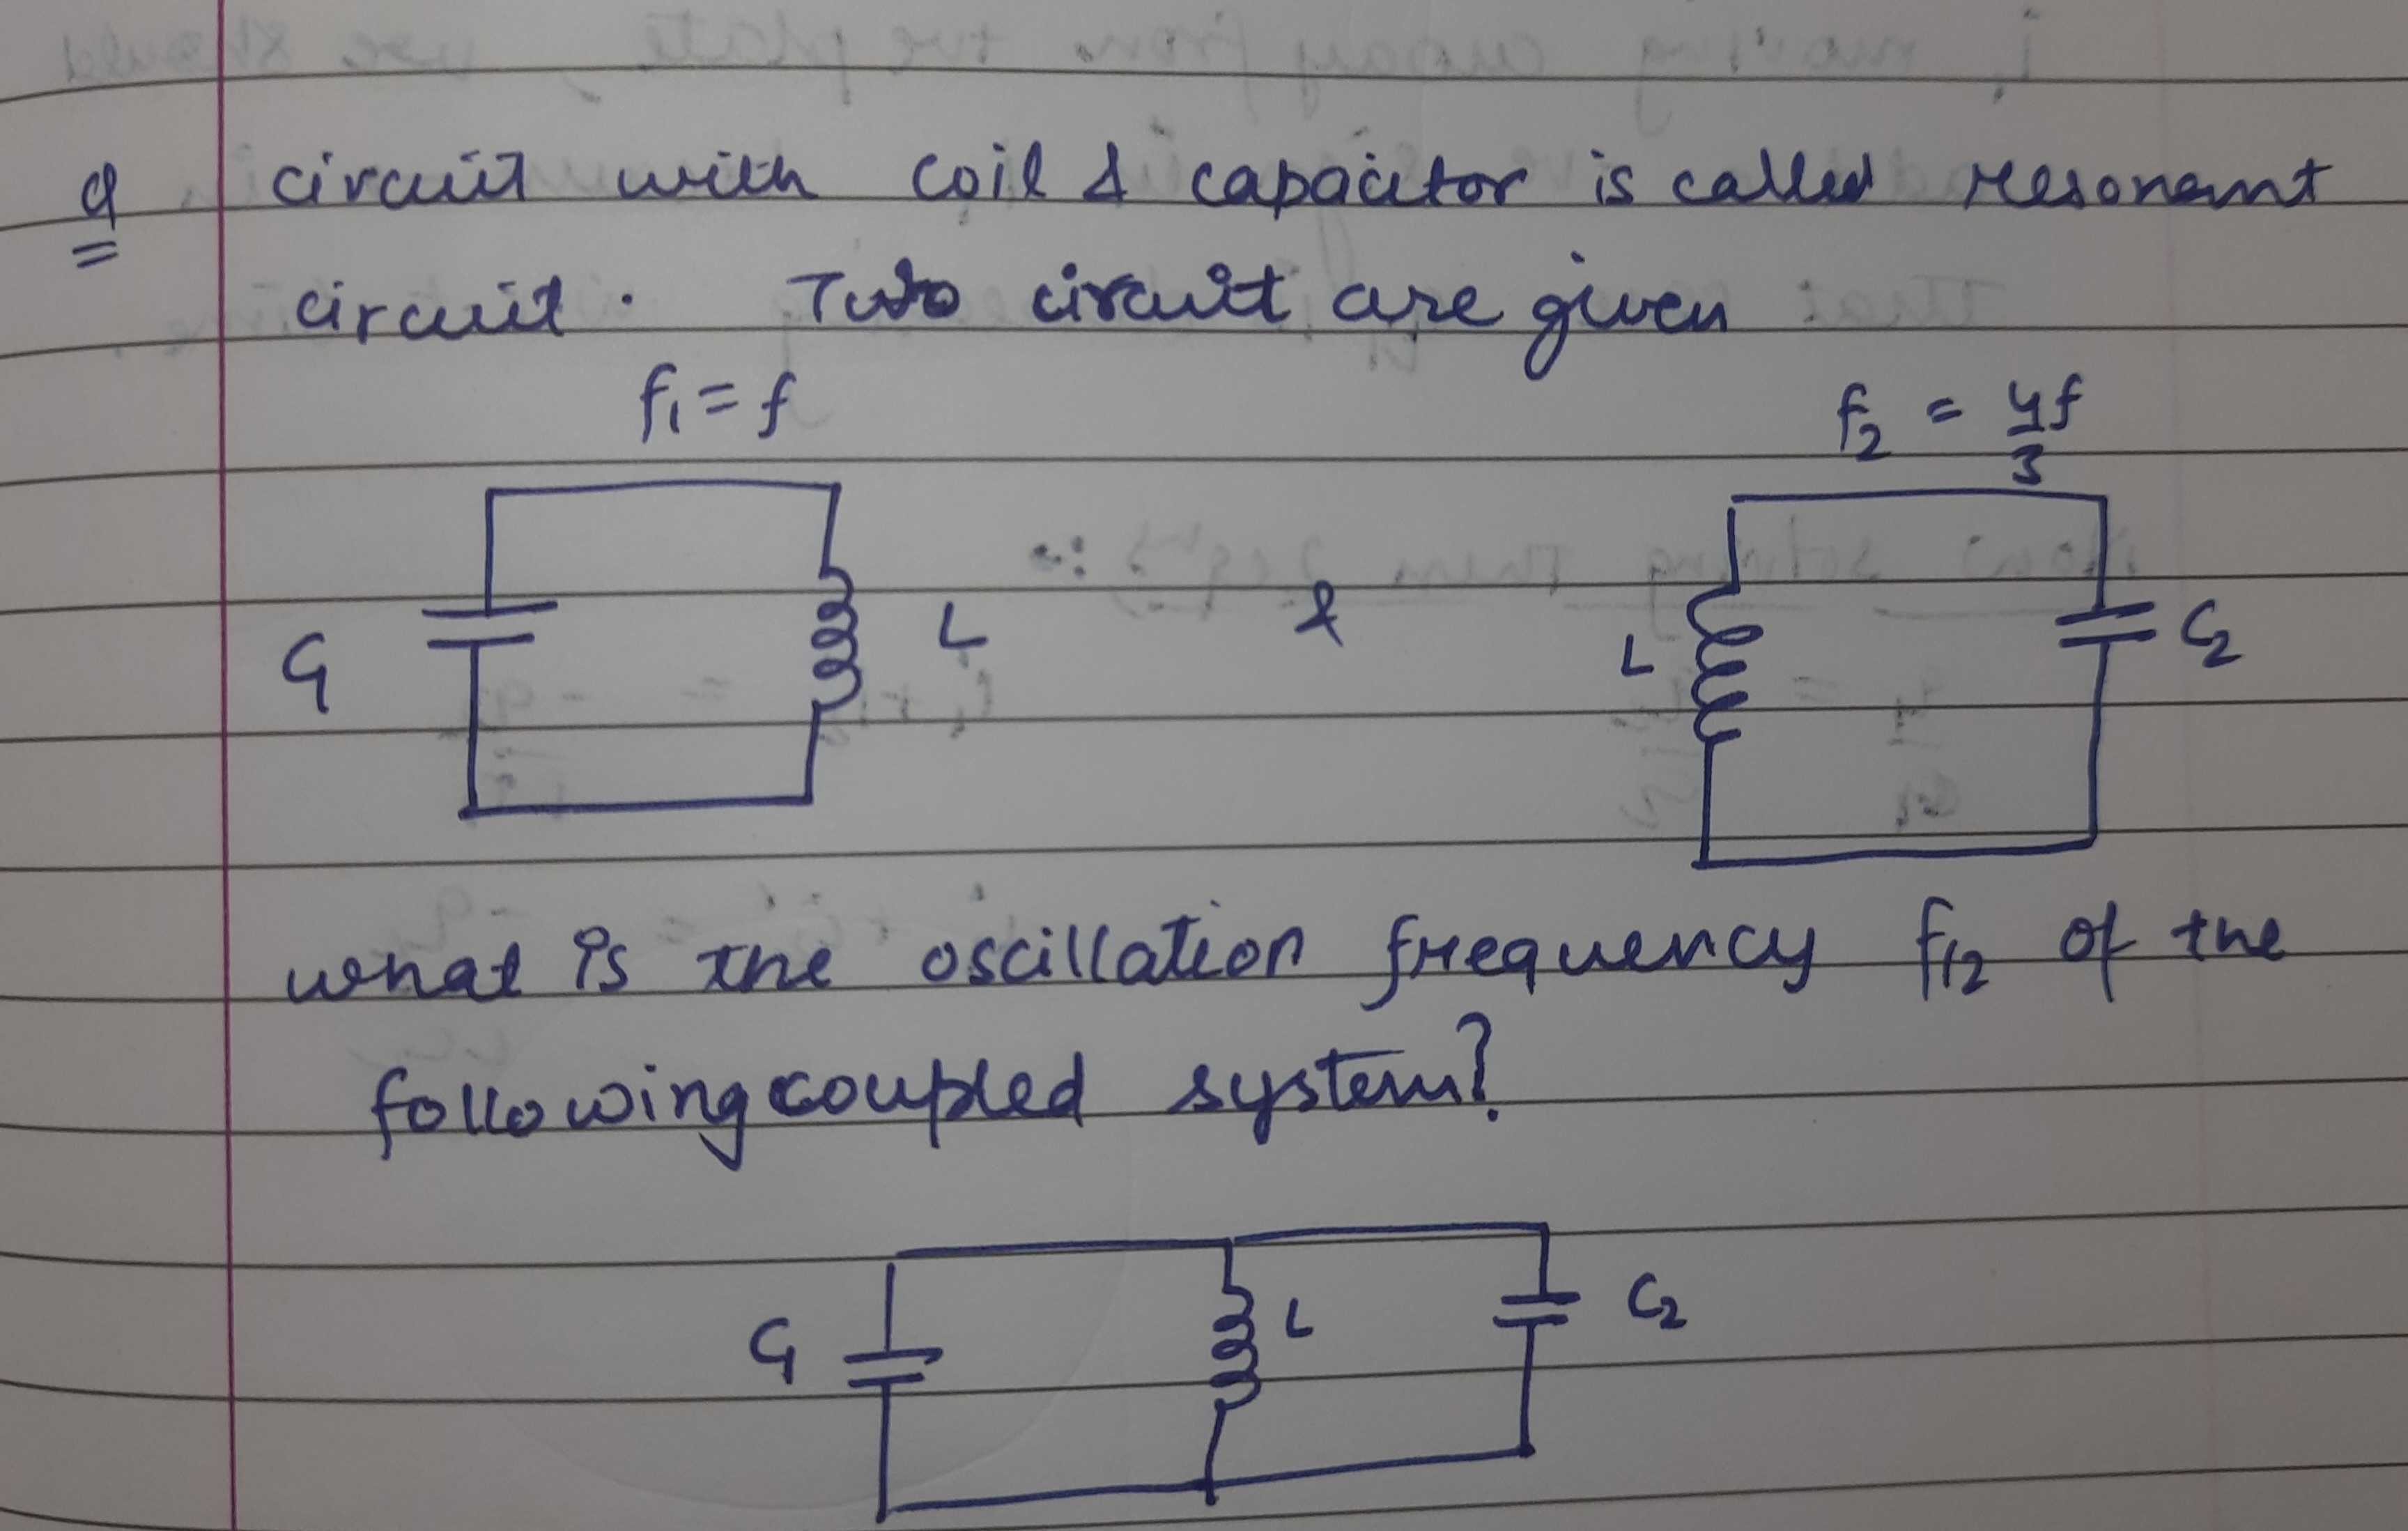 q circuit with coil & capacitor is called resonant
circuit. Two circuit are given
f₁ = f f₂ = 4f/3
C₁ L & L C₂
what is the oscillation frequency f₁₂ of the
following coupled system?
C₁ L C₂